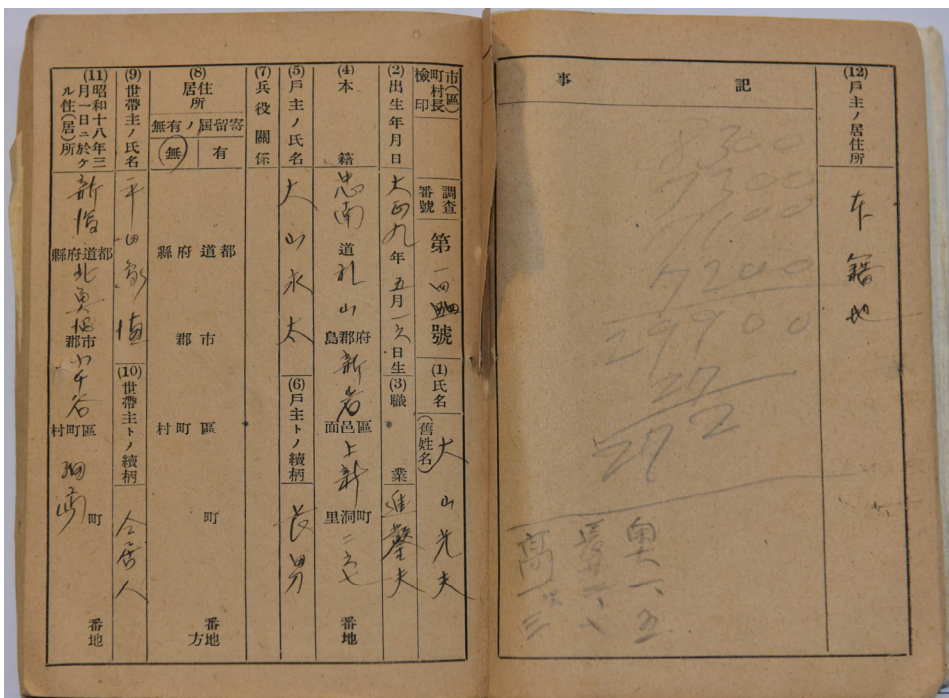 (12)戶主ノ居住所 本籍地
記事
8300
7300
7100
7200
29900
27
2
27
奥一、五
長六、八
高一、三
市(區)町村長檢印
調查番號 第 一四 號
(1)氏名(舊姓名) 大山光夫
(2)出生年月日 大正九年五月一六日生
(3)職業 進鑿夫
(4)本籍 忠南道礼山府郡島新岩區邑面上新町洞里二六七番地
(5)戶主ノ氏名 大山永太
(6)戶主トノ續柄 長男
(7)兵役關係
(8)居住所
寄留屆ノ有無
有
無
都道府縣
市郡
區町村
町
番地方
(9)世帶主ノ氏名 平田
(10)世帶主トノ續柄 仝居人
(11)昭和十八年三月一日ニ於ケル住(居)所
新潟都道府縣
北魚沼市郡
小千谷區町村
町
番地